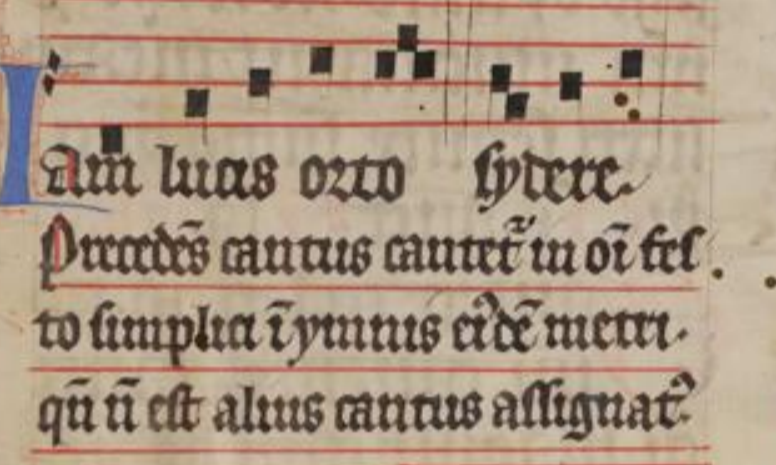 Iam̄ lucis orto sydere.
Precedēs cantus cantet᷑ in oī fes
to simplici ī ymnis eiꝰdē metri.
qn̄ n̄ est alius cantus assignatꝰ.